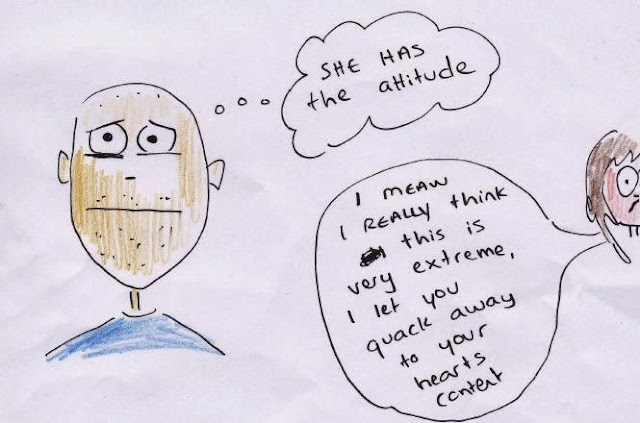 SHE HAS
the attitude
I MEAW
I REALLY think
this is
very extreme,
I let you
quack away
to your
hearts
content